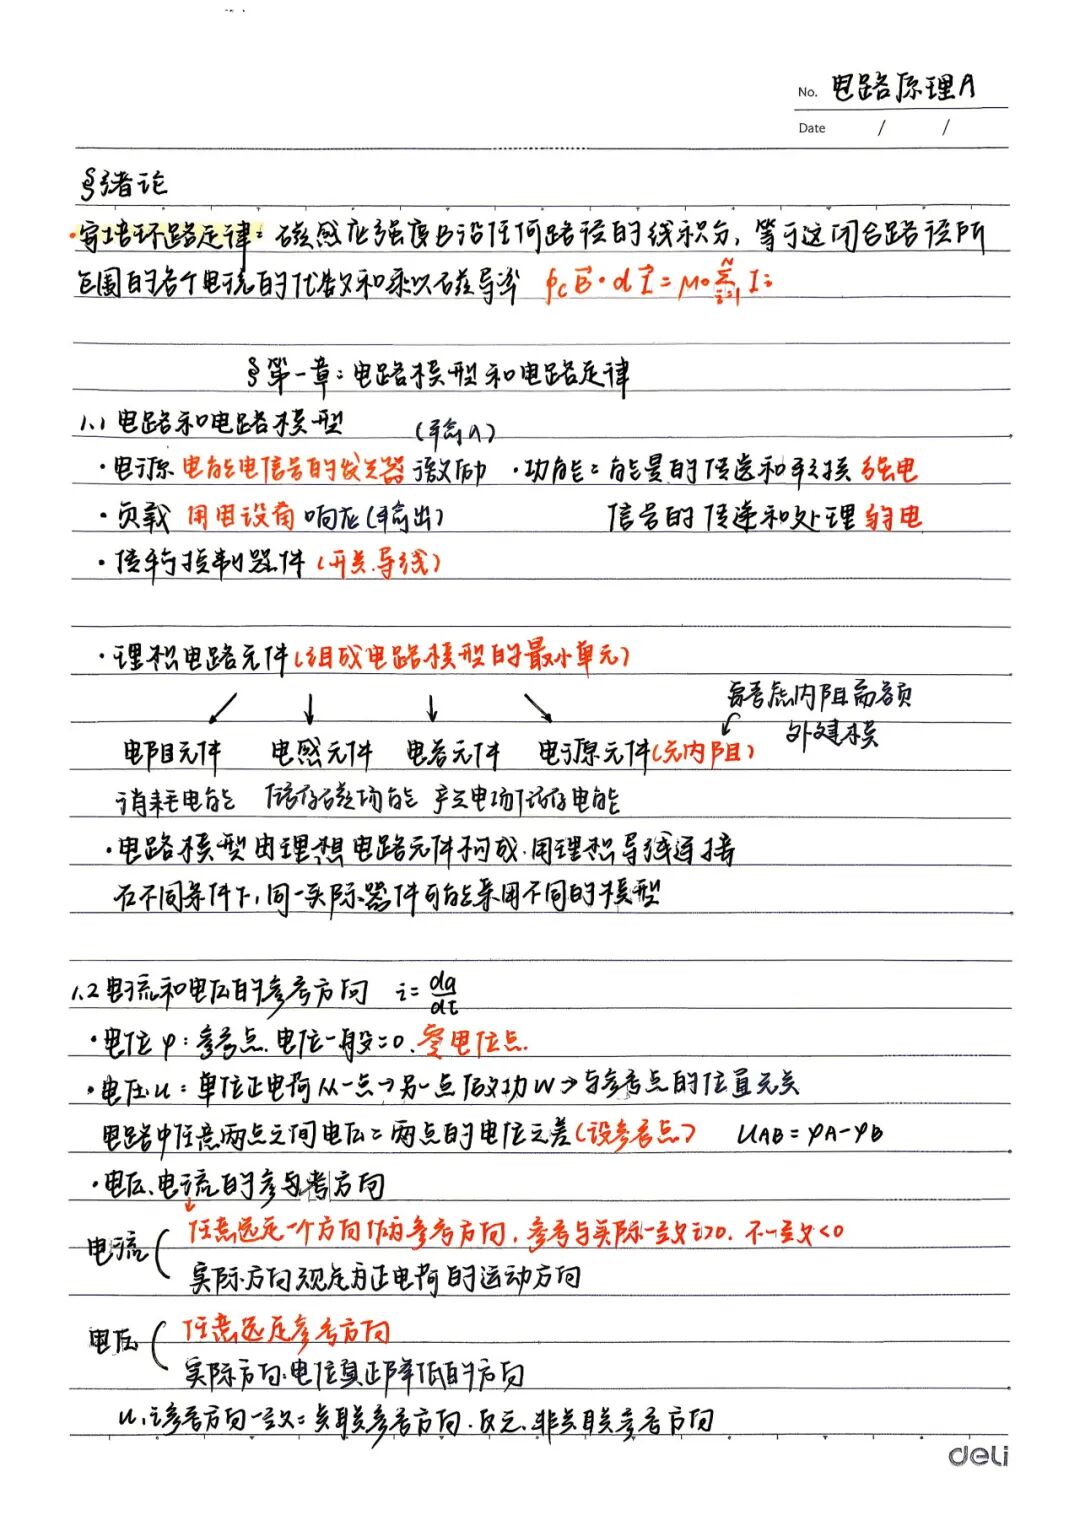 No. 电路原理A
Date / /
§绪论
·安培环路定律：磁感应强度B沿任何路径的线积分，等于这闭合路径所
包围的各个电流的代数和乘以磁导率 ∮c B⃗·d l⃗ = μ₀ Σᴺᵢ₌₁ Iᵢ
§第一章：电路模型和电路定律
1.1 电路和电路模型
(输入)
·电源 电能电信号的发生器 激励 ·功能：能量的传送和转换 强电
·负载 用电设备 响应(输出) 信号的传递和处理 弱电
·传输控制器件(开关.导线)
·理想电路元件(组成电路模型的最小单元)
↙ ↓ ↓ ↘ 若考虑内阻需额
外建模
电阻元件 电感元件 电容元件 电源元件(无内阻)
消耗电能 储存磁场能 产生电场储存电能
·电路模型由理想电路元件构成.用理想导线连接
在不同条件下,同一实际器件可能采用不同的模型
1.2 电流和电压的参考方向 i=dq/dt
·电位φ：参考点.电位一般=0.零电位点.
·电压u：单位正电荷从一点→另一点做功W→与参考点的位置无关
电路中任意两点之间电压=两点的电位之差(设参考点) UAB=φA-φB
·电压、电流的参与考方向
↓
电流( 任意选定一个方向作为参考方向,参考与实际一致i>0.不一致<0
实际方向规定为正电荷的运动方向
电压( 任意选定参考方向
实际方向.电位真正降低的方向
u,i参考方向一致：关联参考方向.反之.非关联参考方向
deli